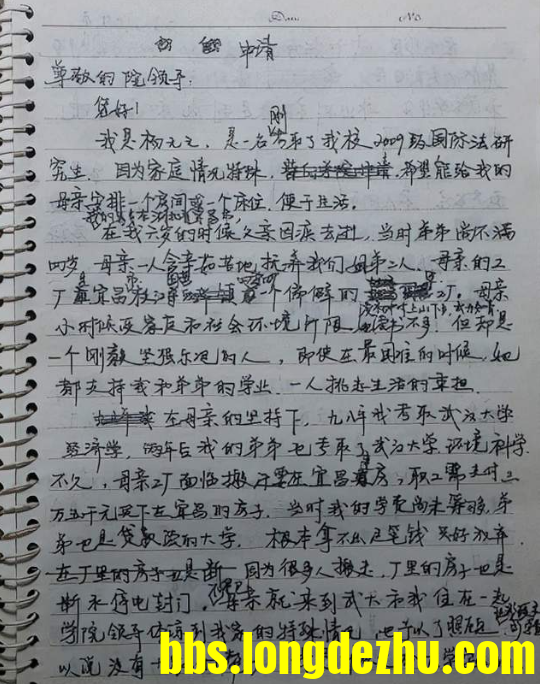 Date. No.
申请
尊敬的院领导:
您好!
刚
我是杨元元,是一名考取了我校2009级国际法研
究生.因为家庭情况特殊,希望能给我的
母亲安排一个房间或一个床位,便于生活。
在我六岁的时候父亲因病去世,当时弟弟尚不满
四岁,母亲一人含辛茹苦地抚养我们姐弟二人.母亲的工
厂是宜昌一个偏僻的工厂。母亲
小时候受家庭和社会环境所限,读书不多!但却是
一个刚毅坚强乐观的人,即使在最困难的时候,她
都支持我和弟弟的学业.一人挑起生活的重担.
在母亲的坚持下,九八年我考取武汉大学
经济学,两年后我的弟弟也考取了武汉大学环境科学.
不久,母亲工厂面临搬迁要在宜昌房,职工需支付三
万五千元买下在宜昌的房子.当时我的学费尚未筹够,弟
弟也是贷款读的大学,根本拿不出这笔钱只好放弃.
在厂里的房子 因为很多人搬走,厂里的房子也是
断水停电封门,母亲就来到武大和我住在一起
学院领导体谅到我家的特殊情况,也予以了照顾.可
以说没有一
bbs.longdezhu.com